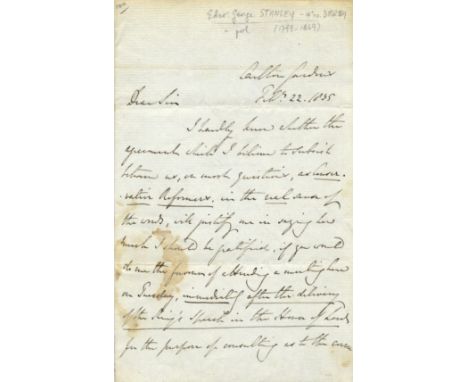 Edw. George STANLEY - DERBY
(1799-1869)
Carlton Gardens
Feb. 22. 1835
Dear Sir
I hardly know whether the
agreement which I believe to subsist
between us, on most questions, as Conser-
-vative Reformers, in the real sense of
the words, will justify me in saying how
much I should be gratified, if you would
do me the favour of attending a meeting here
on Tuesday, immediately after the delivery
of the King's Speech in the House of Lords
for the purpose of consulting as to the course